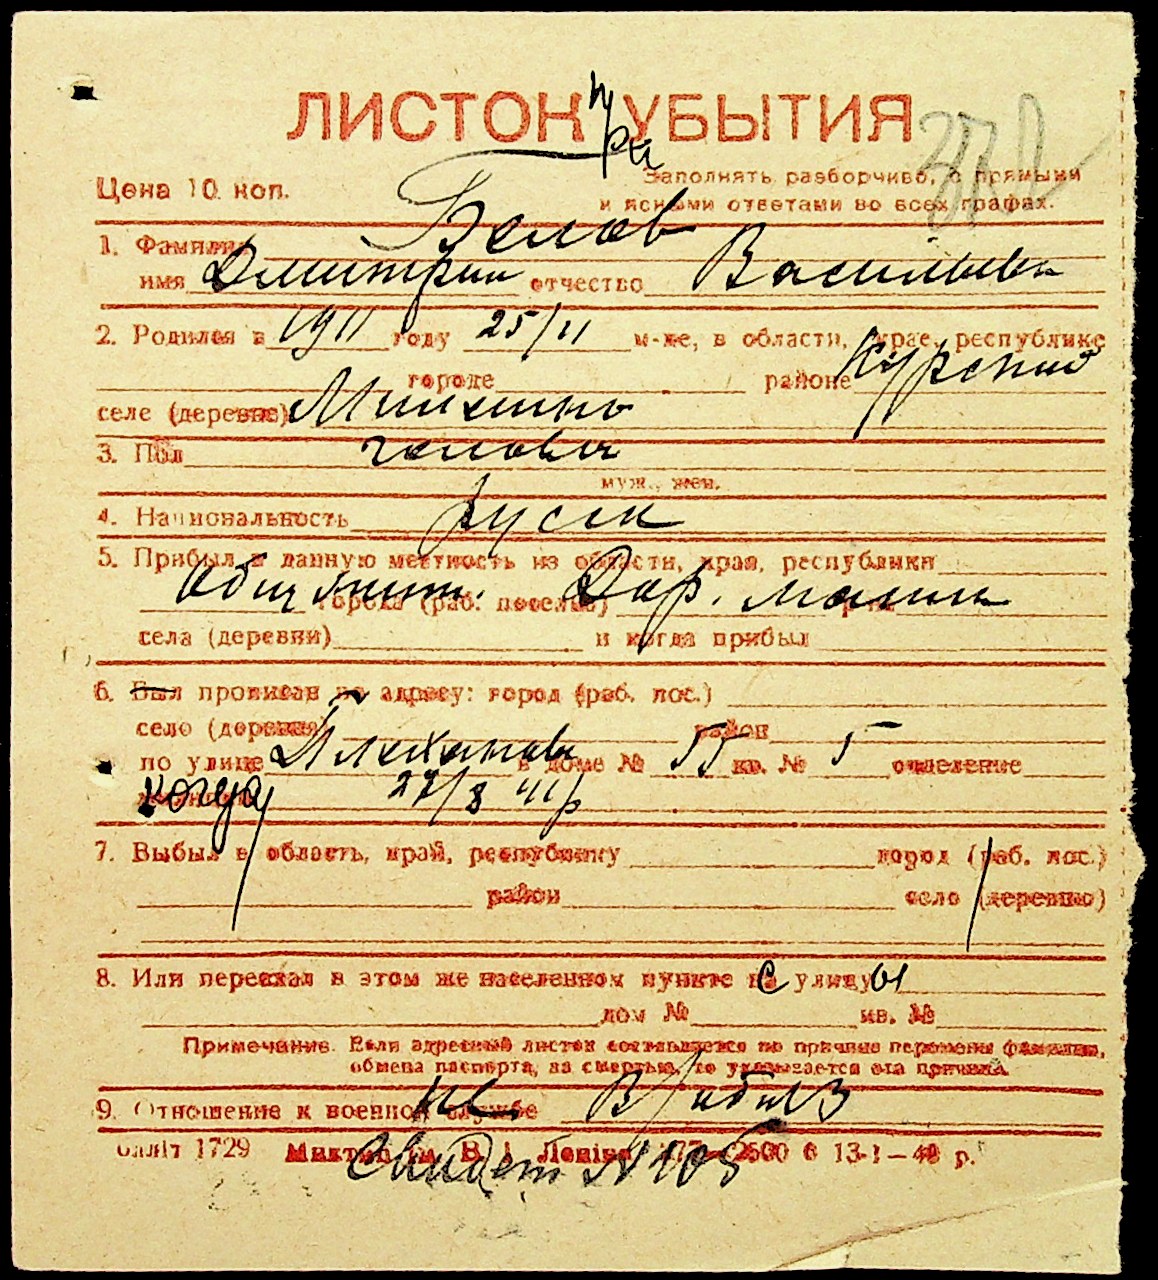 ЛИСТОК УБЫТИЯ
при
Цена 10 коп.
Заполнять разборчиво, с прямыми
и ясными ответами во всех графах.
1. Фамилия Белов
имя Дмитрий отчество Васильевич
2. Родился в 1911 году 25/II м-це, в области, крае, республике
городе районе Курский
селе (деревне)
3. Пол человек
муж., жен.
4. Национальность руск
5. Прибыл в данную местность из области, края, республики
Общежит. города (раб. поселка) Дор. р-на
села (деревни) и когда прибыл
6. Был прописан по адресу: город (раб. пос.)
село (деревня) район
по улице Плеханова в доме № 55 кв. № 5 отделение
милиции когда 27/8 41 р
7. Выбыл в область, край, республику город (раб. пос.)
район село (деревню)
8. Или переехал в этом же населенном пункте на с улицу ы
дом № кв. №
Примечание. Если адресный листок составляется по причине перемены фамилии,
обмена паспорта, за смертью, то указывается эта причина.
9. Отношение к военной службе
Обліт 1729 В. І. Леніна 2500 6 13-I-40 р.
Свидет № 105